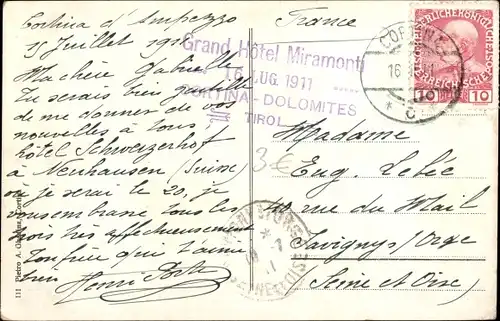 Cortina d'Ampezzo
15 Juillet 1911
Ma chère Gabrielle
Tu serais bien gentille
de me donner de vos
nouvelles à tous,
hôtel Schweizerhof
à Neuhausen (Suisse)
où je serai le 20, je
vous embrasse tous les
trois très affectueusement
Ton frère qui t'aime
bien
Henri
France
Grand Hôtel Miramonti
16 LUG. 1911
CORTINA - DOLOMITES
TIROL
10 10
3€
Madame
Eug.
rue du Mail
Savigny s/ Orge
(Seine et Oise)
III Pietro A.